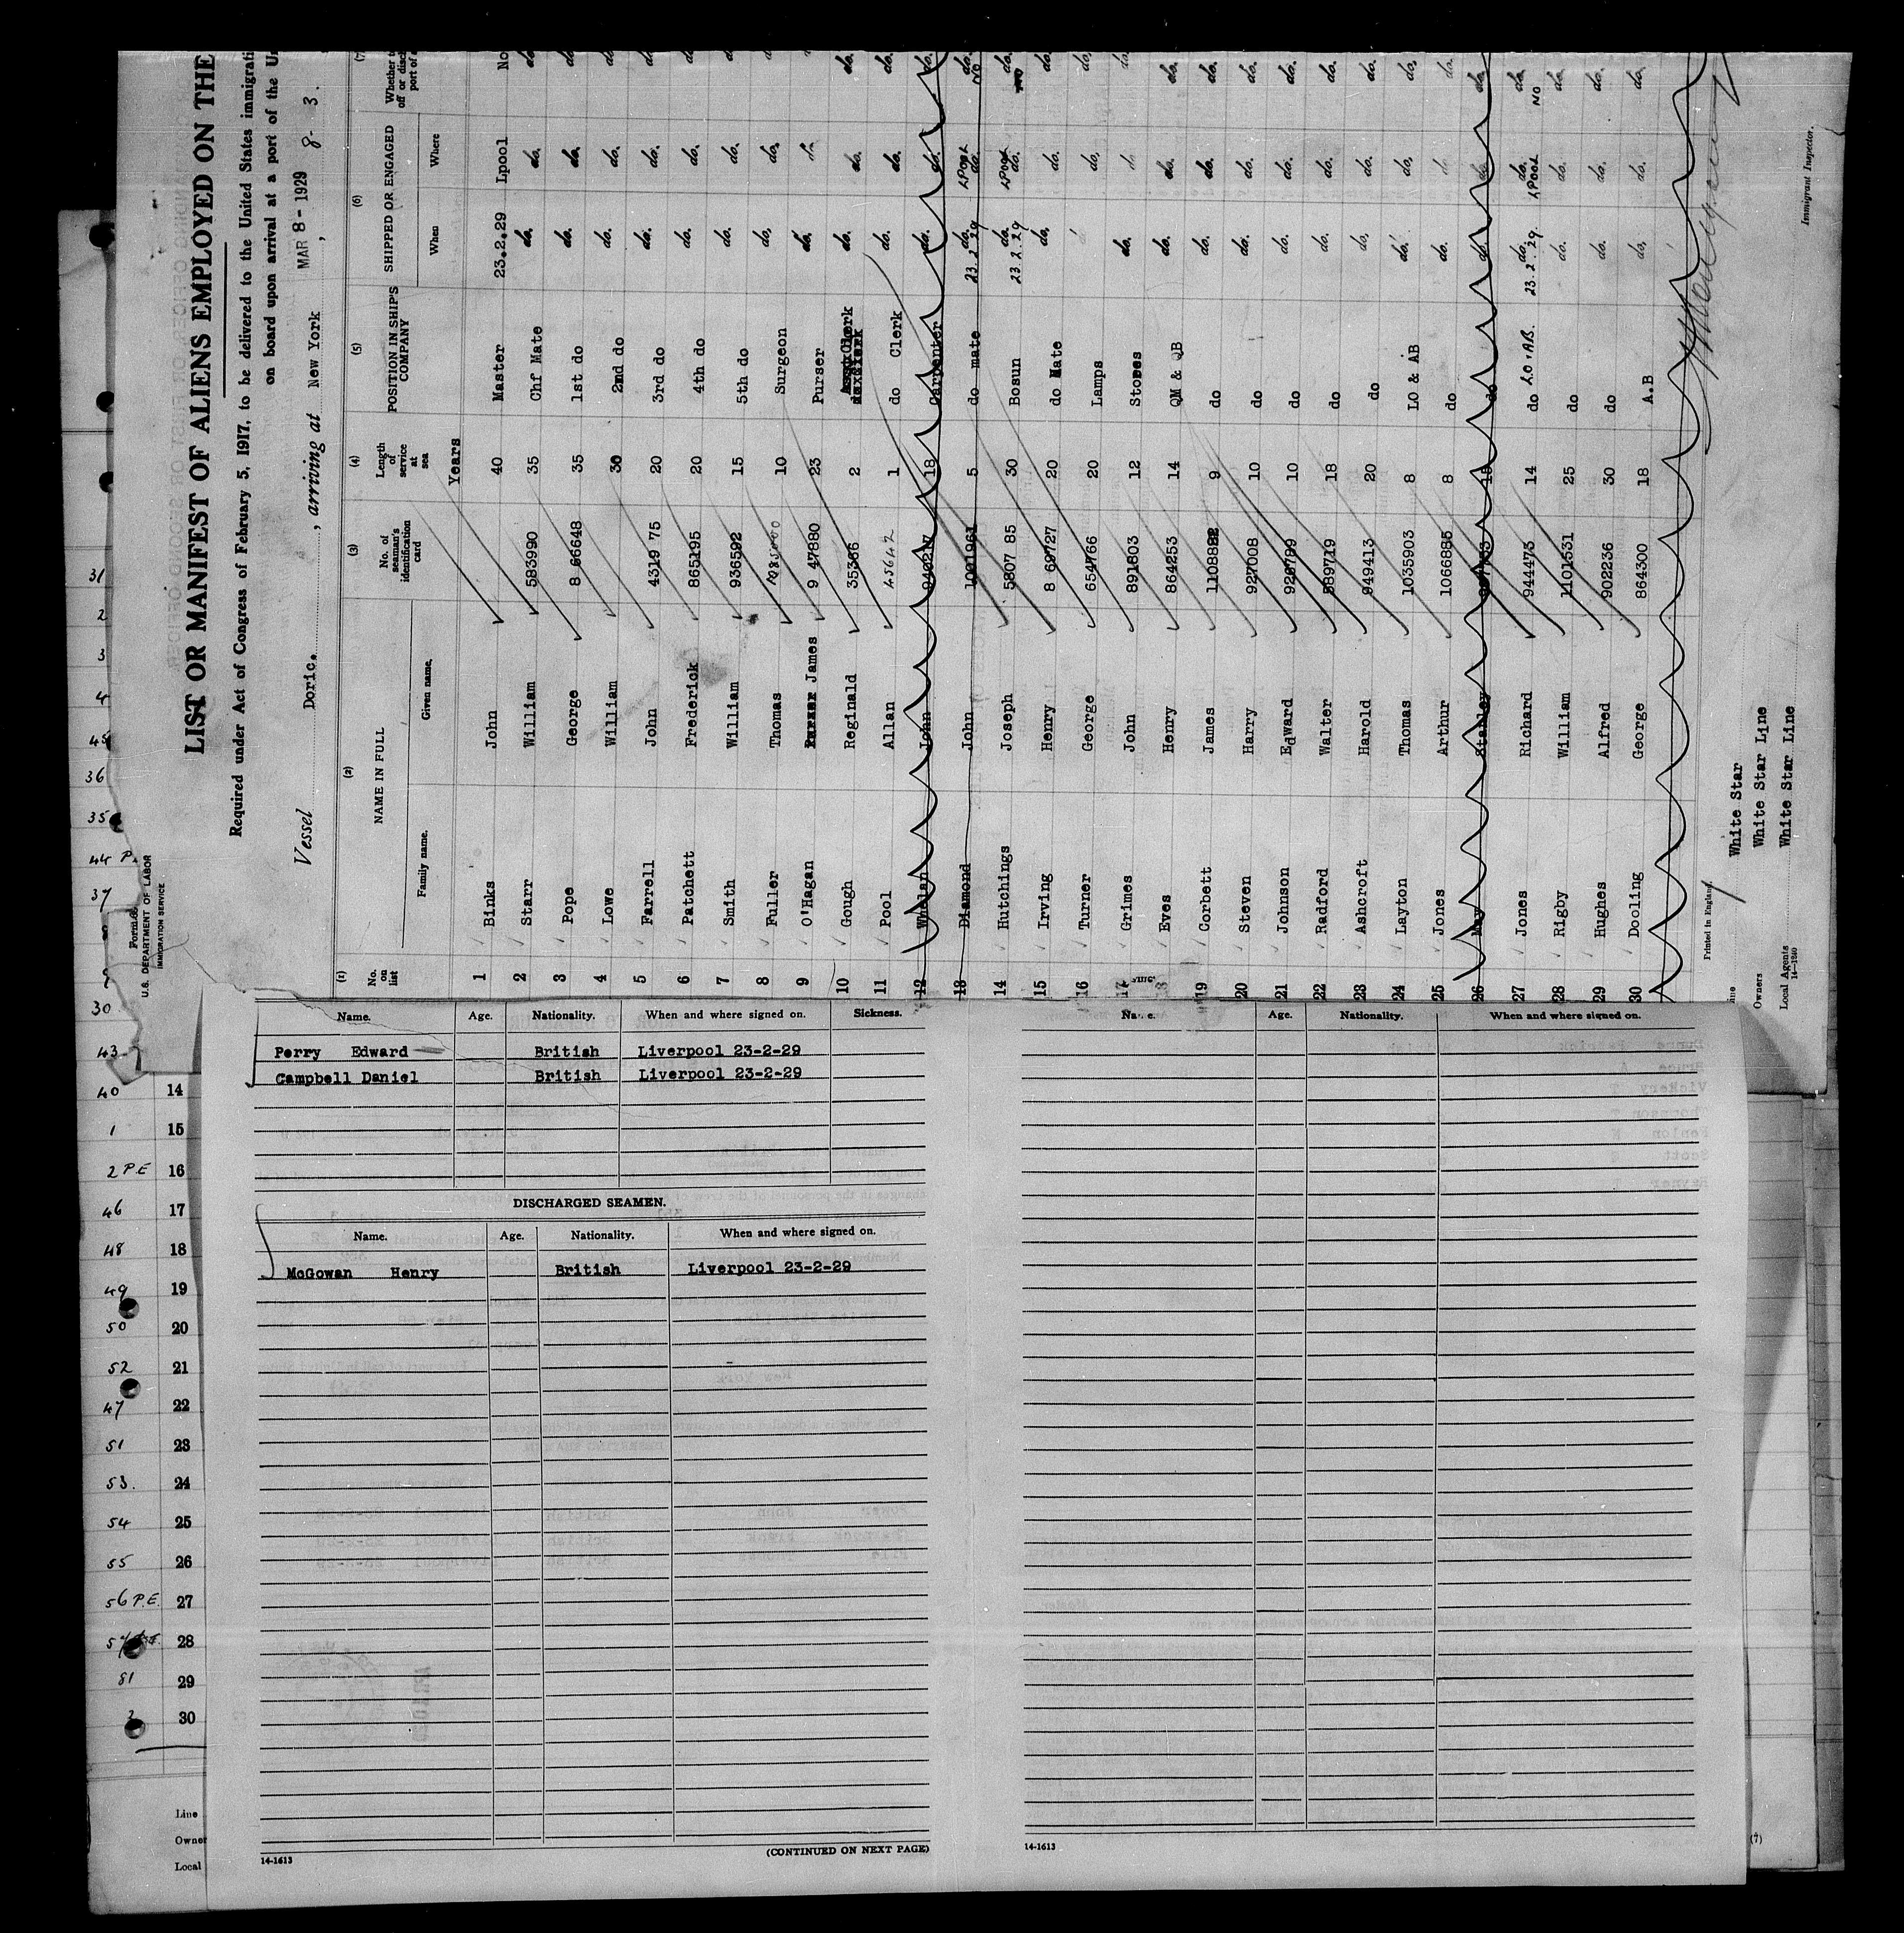 LIST OR MANIFEST OF ALIENS EMPLOYED ON THE
Required under Act of Congress of February 5, 1917, to be delivered to the United States immigrati
on board upon arrival at a port of the U
Vessel Doric. , arriving at New York MAR 8 - 1929 , 8- 3.
U.S. DEPARTMENT OF LABOR
IMMIGRATION SERVICE
(1) (2) (3) (4) (5) (6)
No. on list NAME IN FULL No. of seaman's identification card Length of service at sea POSITION IN SHIP'S COMPANY SHIPPED OR ENGAGED
Family name. Given name. Years When Where
1 Binks John 40 Master 23.2.29 Lpool No
2 Starr William 583990 35 Chf Mate do. do. do
3 Pope George 8 66648 35 1st do do. do. do
4 Lowe William 30 2nd do do. do. do
5 Farrell John 4319 75 20 3rd do do. do. do
6 Patchett Frederick 865195 20 4th do do. do. do
7 Smith William 936592 15 5th do do. do. do
8 Fuller Thomas 10 Surgeon do. do.
9 O'Hagan James 9 47880 23 Purser do. do
10 Gough Reginald 35366 2 Clerk do. do. do.
11 Pool Allan 45642 1 do Clerk do. do. do.
12 Whelan John 940217 18 Carpenter do. do. do.
13 Diamond John 1001961 5 do mate do. 23.2.29 do. LPOOL do. NO
14 Hutchings Joseph 5807 85 30 Bosun do. 23.2.29 do. LPOOL do. NO
15 Irving Henry 8 69727 20 do Mate do. do. do.
16 Turner George 654766 20 Lamps do. do.
17 Grimes John 891803 12 Stores do. do do.
18 Eves Henry 864253 14 QM & QB do. do. do.
19 Corbett James 1108882 9 do do. do. do.
20 Steven Harry 927008 10 do do. do. do.
21 Johnson Edward 926799 10 do do. do. do.
22 Radford Walter 589719 18 do do. do. do.
23 Ashcroft Harold 949413 20 do do. do. do.
24 Layton Thomas 1035903 8 LO & AB do. do. do.
25 Jones Arthur 1066885 8 do do. do do.
26 May Stanley do do. do. do
27 Jones Richard 944473 14 do LO + AB. do. 23.2.29. do. LPOOL do. NO
28 Rigby William 1101531 25 do do. do. do.
29 Hughes Alfred 902236 30 do do. do. do.
30 Dooling George 864300 18 A.B do. do. do.
Printed in England.
White Star
Owners White Star Line
Local Agents White Star Line
14-1240
Immigrant Inspector.
Name. Age. Nationality. When and where signed on. Sickness.
Perry Edward British Liverpool 23-2-29
Campbell Daniel British Liverpool 23-2-29
DISCHARGED SEAMEN.
Name. Age. Nationality. When and where signed on.
McGowan Henry British Liverpool 23-2-29
(CONTINUED ON NEXT PAGE)
14-1613
Age. Nationality. When and where signed on.
14-1613
31
2
3
4
45
36
35
44
37
30
43
40 14
1 15
2 P.E 16
46 17
48 18
49 19
50 20
52 21
47 22
51 23
53. 24
54 25
55 26
56 P.E. 27
28
81 29
30
Line
Owner
Local
(7)